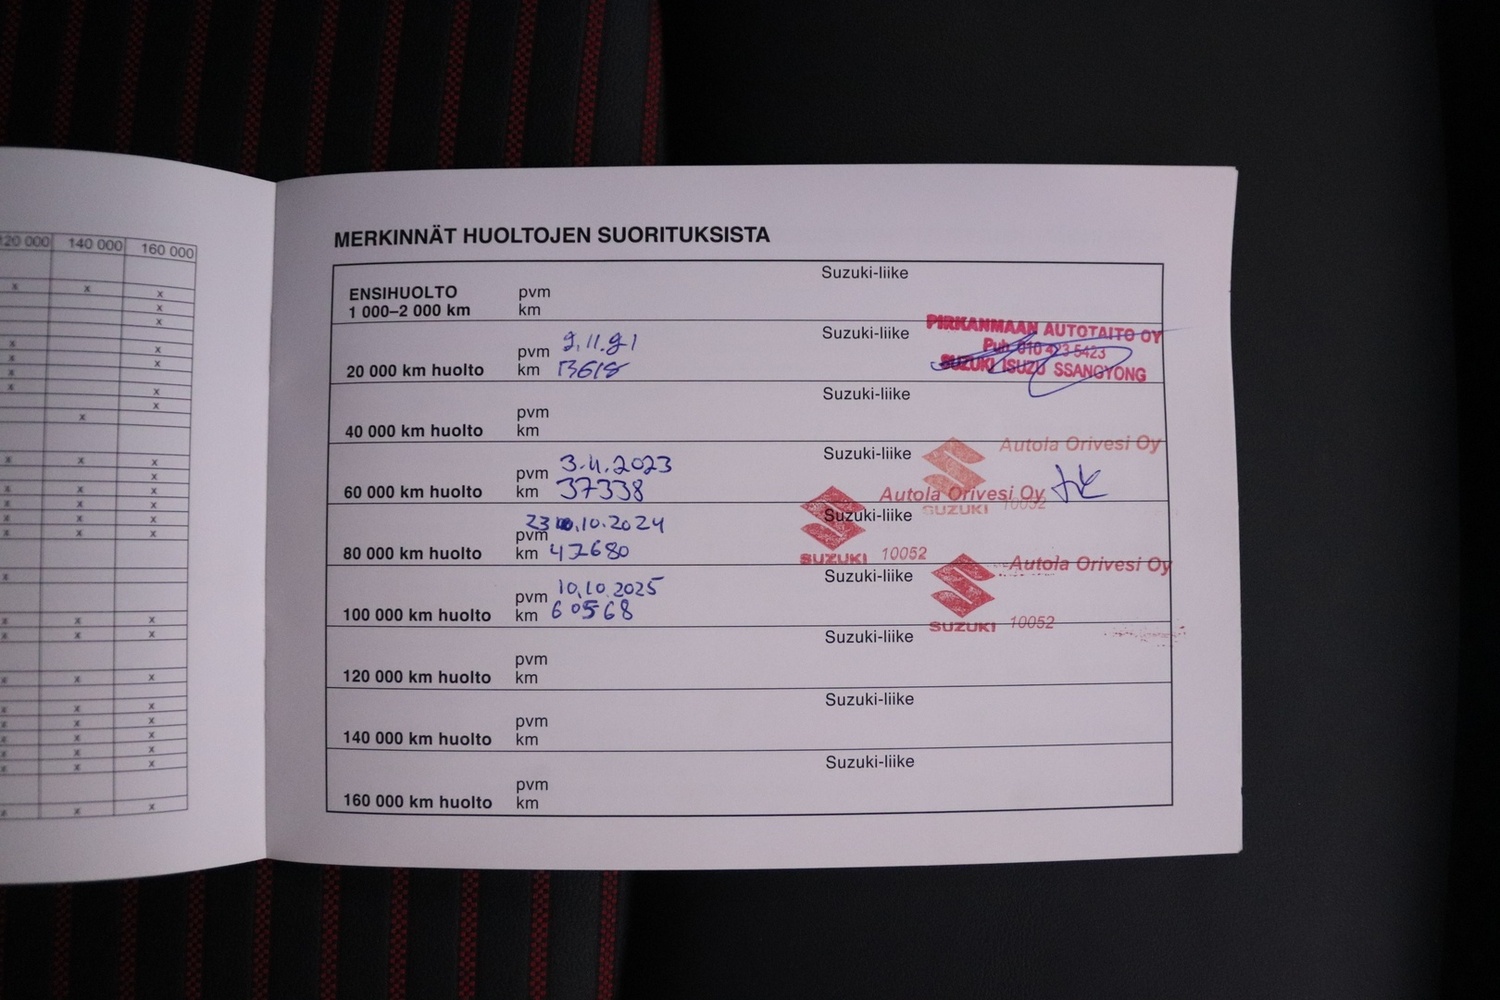 120 000 140 000 160 000
MERKINNÄT HUOLTOJEN SUORITUKSISTA
Suzuki-liike
ENSIHUOLTO pvm
1 000–2 000 km km
Suzuki-liike PIRKANMAAN AUTOTAITO OY
Puh. 010 423 5423
SUZUKI ISUZU SSANGYONG
pvm 9.11.21
20 000 km huolto km 13618
Suzuki-liike
pvm
40 000 km huolto km
Suzuki-liike Autola Orivesi Oy
SUZUKI 10052
pvm 3.11.2023
60 000 km huolto km 37338
Autola Orivesi Oy
Suzuki-liike
SUZUKI 10052
pvm 23.10.2024
80 000 km huolto km 47680
Suzuki-liike Autola Orivesi Oy
SUZUKI 10052
pvm 10.10.2025
100 000 km huolto km 60568
Suzuki-liike
pvm
120 000 km huolto km
Suzuki-liike
pvm
140 000 km huolto km
Suzuki-liike
pvm
160 000 km huolto km